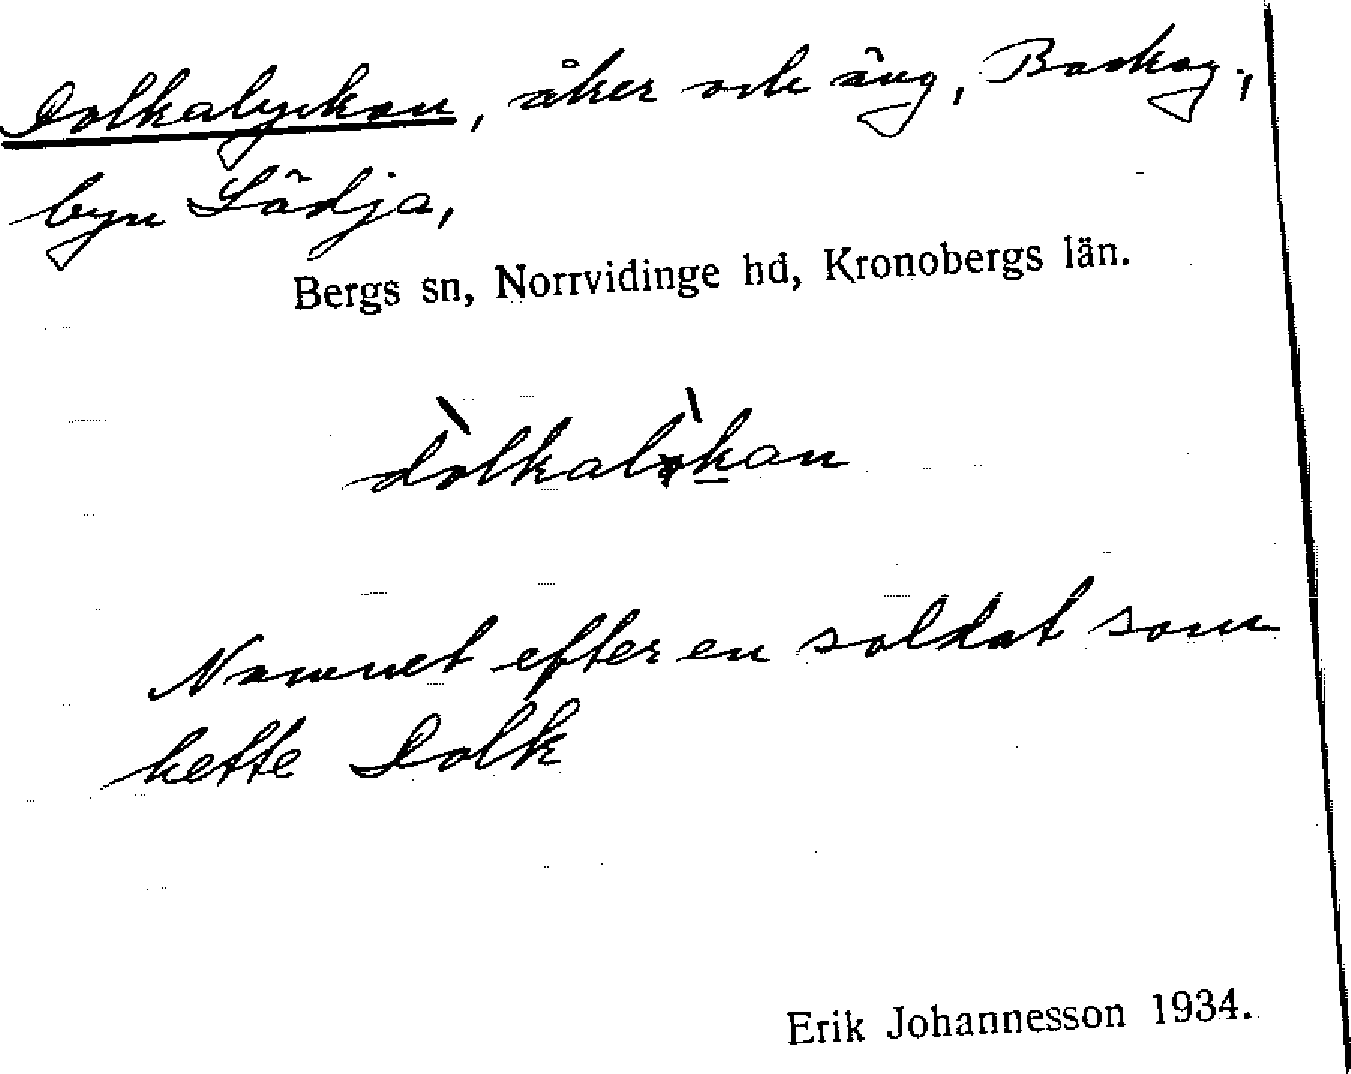 Dolkalyckan, åker och äng, Boskog,
byn Lädja,
Bergs sn, Norrvidinge hd, Kronobergs län.
dòlkalòkan
Namnet efter en soldat som
hette Dolk
Erik Johannesson 1934.